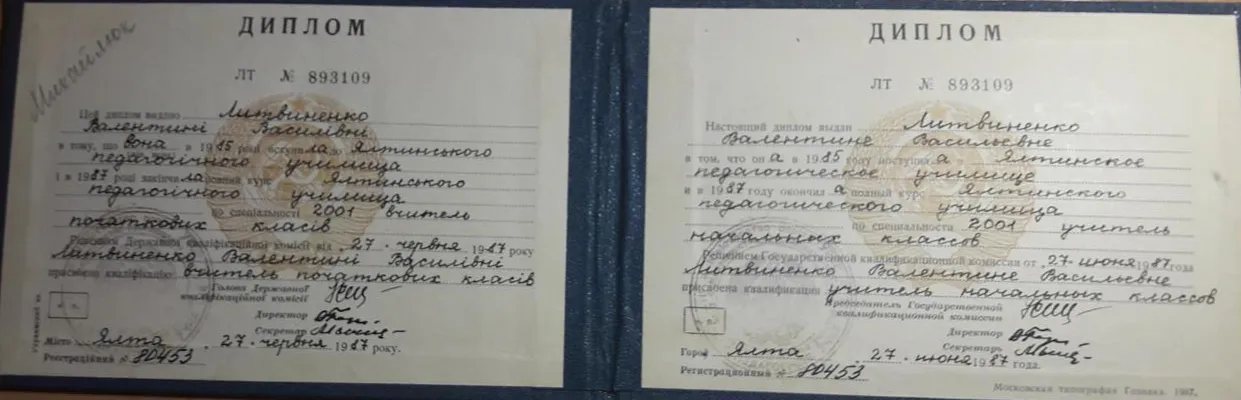 Михайлюк
ДИПЛОМ
ЛТ № 893109
Цей диплом видано Литвиненко
Валентині Василівні
в тому, що вона в 1985 році вступила до Ялтинського
педагогічного училища
і в 1987 році закінчила повний курс Ялтинського
педагогічного училища
по спеціальності 2001 вчитель
початкових класів
Рішенням Державної кваліфікаційної комісії від 27 червня 1987 року
Литвиненко Валентині Василівні
присвоєно кваліфікацію вчитель початкових класів
Голова Державної
кваліфікаційної комісії
Директор
Секретар
Місто Ялта 27 червня 1987 року.
Реєстраційний № 80453
ДИПЛОМ
ЛТ № 893109
Настоящий диплом выдан Литвиненко
Валентине Васильевне
в том, что он а в 1985 году поступил а Ялтинское
педагогическое училище
и в 1987 году окончил а полный курс Ялтинского
педагогического училища
по специальности 2001 учитель
начальных классов
Решением Государственной квалификационной комиссии от 27 июня 1987 года
Литвиненко Валентине Васильевне
присвоена квалификация учитель начальных классов
Председатель Государственной
квалификационной комиссии
Директор
Секретарь
Город Ялта 27 июня 1987 года.
Регистрационный № 80453
Московская типография Гознака 1987.